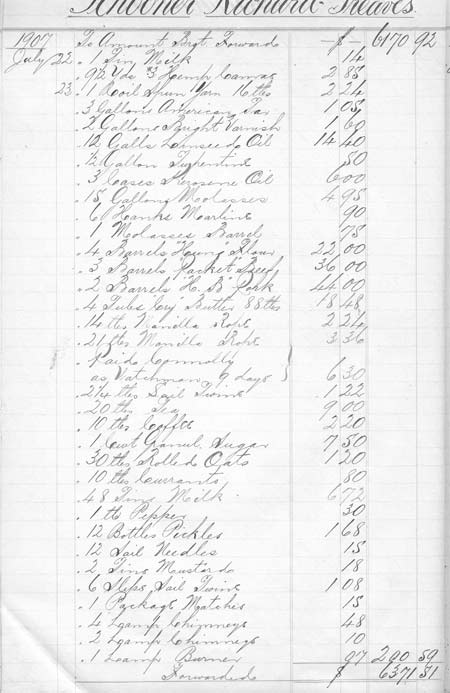 Schooner Richard Greaves.
1907 To Amount Brgt Forwards $ 6170 92
July 22 . 1 Tin Milk 14
. 9 1/2 Yds #3 Hemp Canvas 2 85
23 . 1 Coil Spun Yarn 16 lbs 2 24
. 3 Gallons American Tar 1 05
. 2 Gallons Bright Varnish 1 60
. 12 Galls Linseed Oil 14 40
. 1/2 Gallon Turpentine 50
. 3 Cases Kerosene Oil 6 00
. 15 Gallons Molasses 4 95
. 6 Hanks Marline 90
. 1 Molasses Barrel 75
. 4 Barrels Flour 22 00
. 3 Barrels "Packet" Beef 36 00
. 2 Barrels "H. B" Pork 44 00
. 4 Tubs Butter 88 lbs 18 48
. 14 lbs Manilla Rope 2 24
. 21 lbs Manilla Rope 3 36
. Paid Connolly
as Watchman 9 days } 6 30
. 2 1/4 lbs Sail Twine 1 22
. 20 lbs Tea 9 00
. 10 lbs Coffee 2 20
. 1 Cwt Granul. Sugar 7 50
. 30 lbs Rolled Oats 1 20
. 10 lbs Currants 80
. 48 Tins Milk 6 72
. 1 lb Pepper 30
. 12 Bottles Pickles 1 68
. 12 Sail Needles 15
. 2 Tins Mustard 18
. 6 Skps Sail Twine 1 08
. 1 Package Matches 15
. 4 Lamp Chimneys 48
. 2 Lamp Chimneys 10
. 1 Lamp Burner 07 200 59
Forwarded $ 6371 51